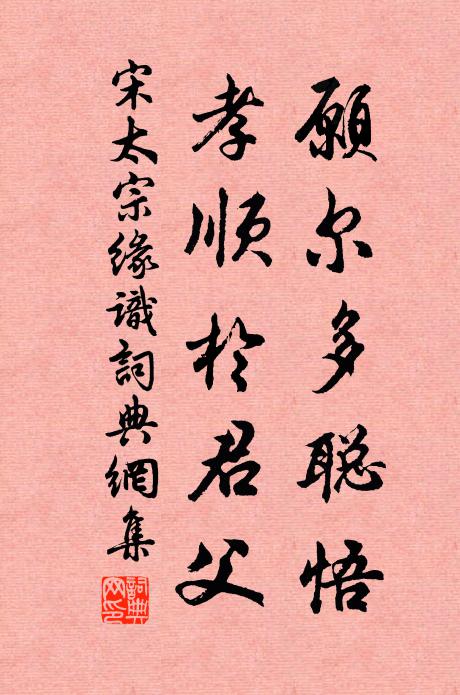 願尔多聪悟
孝順於君父
宋太宗缘識詞典網集
詞典網印